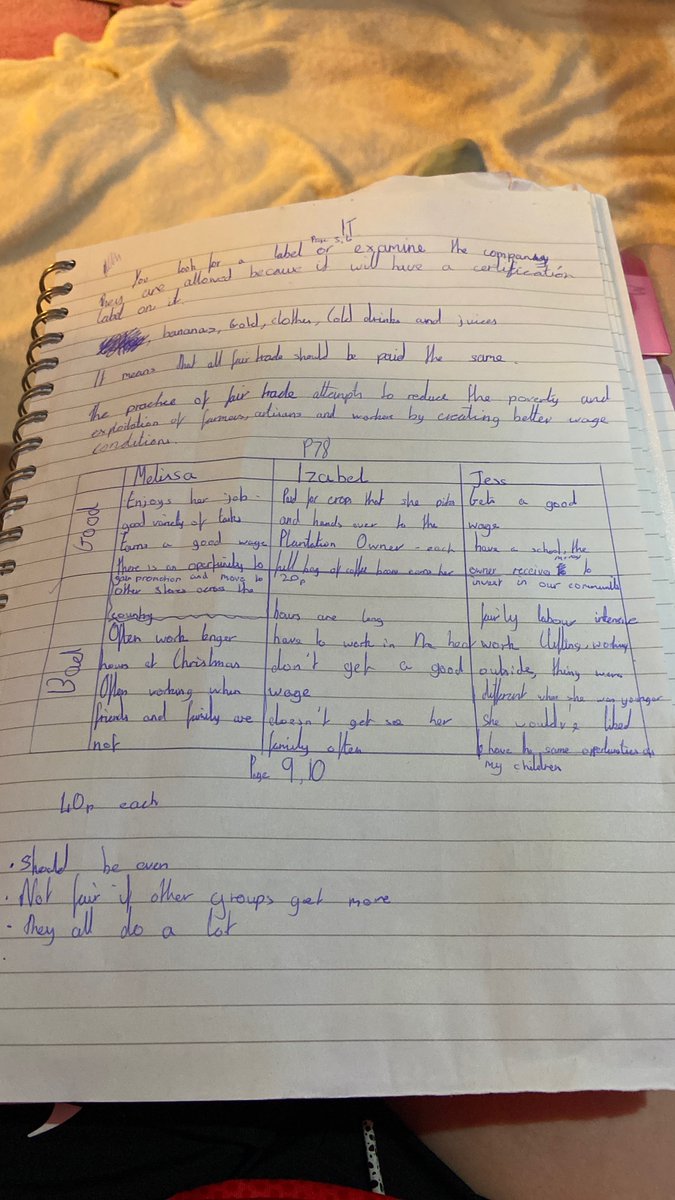 IT
Page 5,6
You look for a label or examine the company
They are allowed because it will have a certification
label on it.
bananas, Gold, clothes, Cold drinks and juices
It means that all fair trade should be paid the same.
The practice of fair trade attempts to reduce the poverty and
exploitation of farmers, artisans and workers by creating better wage
conditions.
P78
Melissa Izabel Jess
Good
Enjoys her job -
good variety of tasks
Earns a good wage
There is an opertunity to
gain promotion and move to
other stores across the
country
Paid for crop that she picks
and hands over to the
Plantation Owner - each
full bag of coffee beans earns her
20p
Gets a good
wage
have a school, the
owner receives money to
invest in our community
Bad
Often work longer
hours at Christmas
Often working when
friends and family are
not
hours are long
have to work in the heat
don't get a good
wage
doesn't get see her
family often
fairly labour intensive
work lifting, working
outside, thing were
different when she was younger
she would've liked
have the same opertunities as
my children
Page 9,10
40p each
• Should be even
• Not fair if other groups get more
- They all do a lot